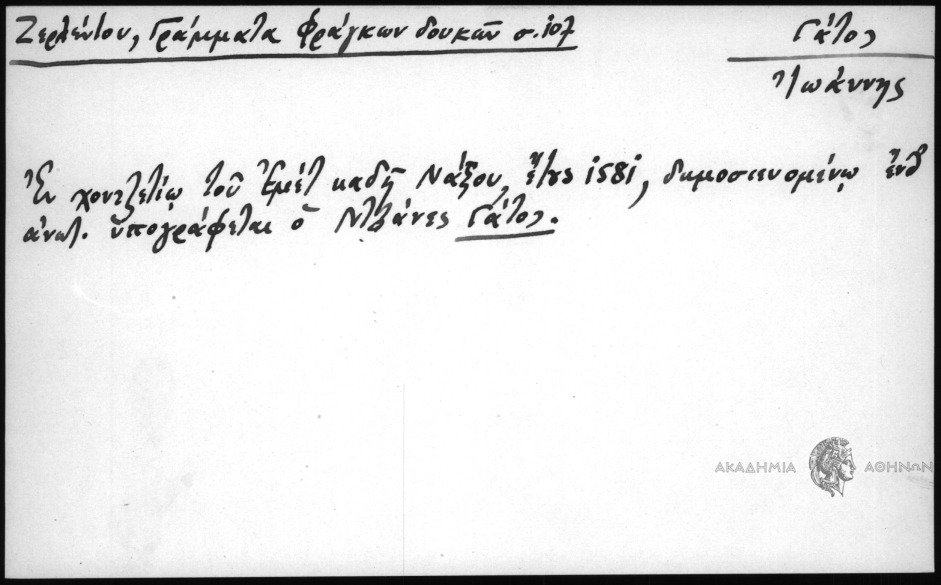 Ζερλέντου, Γράμματα Φράγκων δουκῶν σ. 107
Γάτος
Ἰωάννης
Ἐν χοντζετίῳ τοῦ Ἐμέτ καδῆ Νάξου, ἔτους 1581, δημοσιευομένῳ ἔνθ
ἀνωτ. ὑπογράφεται ὁ Ντζάνες Γάτος.
ΑΚΑΔΗΜΙΑ ΑΘΗΝΩΝ